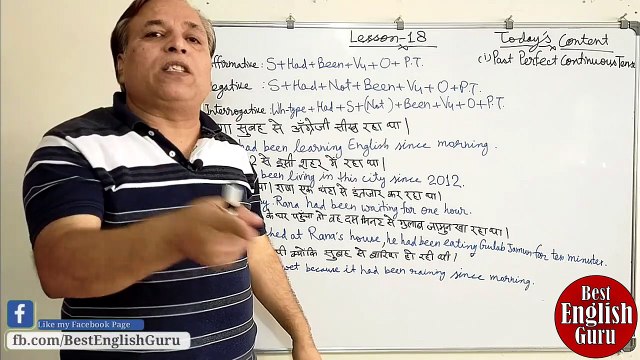 Lesson-18
Today's Content
(i) Past Perfect Continuous Tense
ffirmative: S+Had+Been+V4+O+P.T.
egative: S+Had+Not+Been+V4+O+P.T.
Interrogative: Wh-type+Had+S+(Not)+Been+V4+O+P.T.
सुबह से अंग्रेजी सीख रहा था।
had been learning English since morning.
से इसी शहर में रहा था।
been living in this city since 2012.
था। राणा एक घंटा से इंतजार कर रहा था।
Rana had been waiting for one hour.
के घर पहुँचा तो वह दस मिनट से गुलाब जामुन खा रहा था।
hed at Rana's house, he had been eating Gulab Jamun for ten minutes.
थी क्योंकि सुबह से बारिश हो रही थी।
wet because it had been raining since morning.
f
Like my Facebook Page
fb.com/BestEnglishGuru
Best
English
Guru